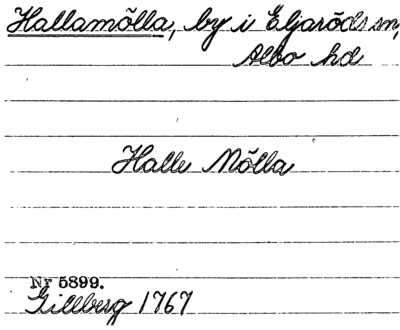 Hallamölla, by i Eljaröds sn,
Albo hd
Halle Mölla
Nr 5899.
Gillberg 1767